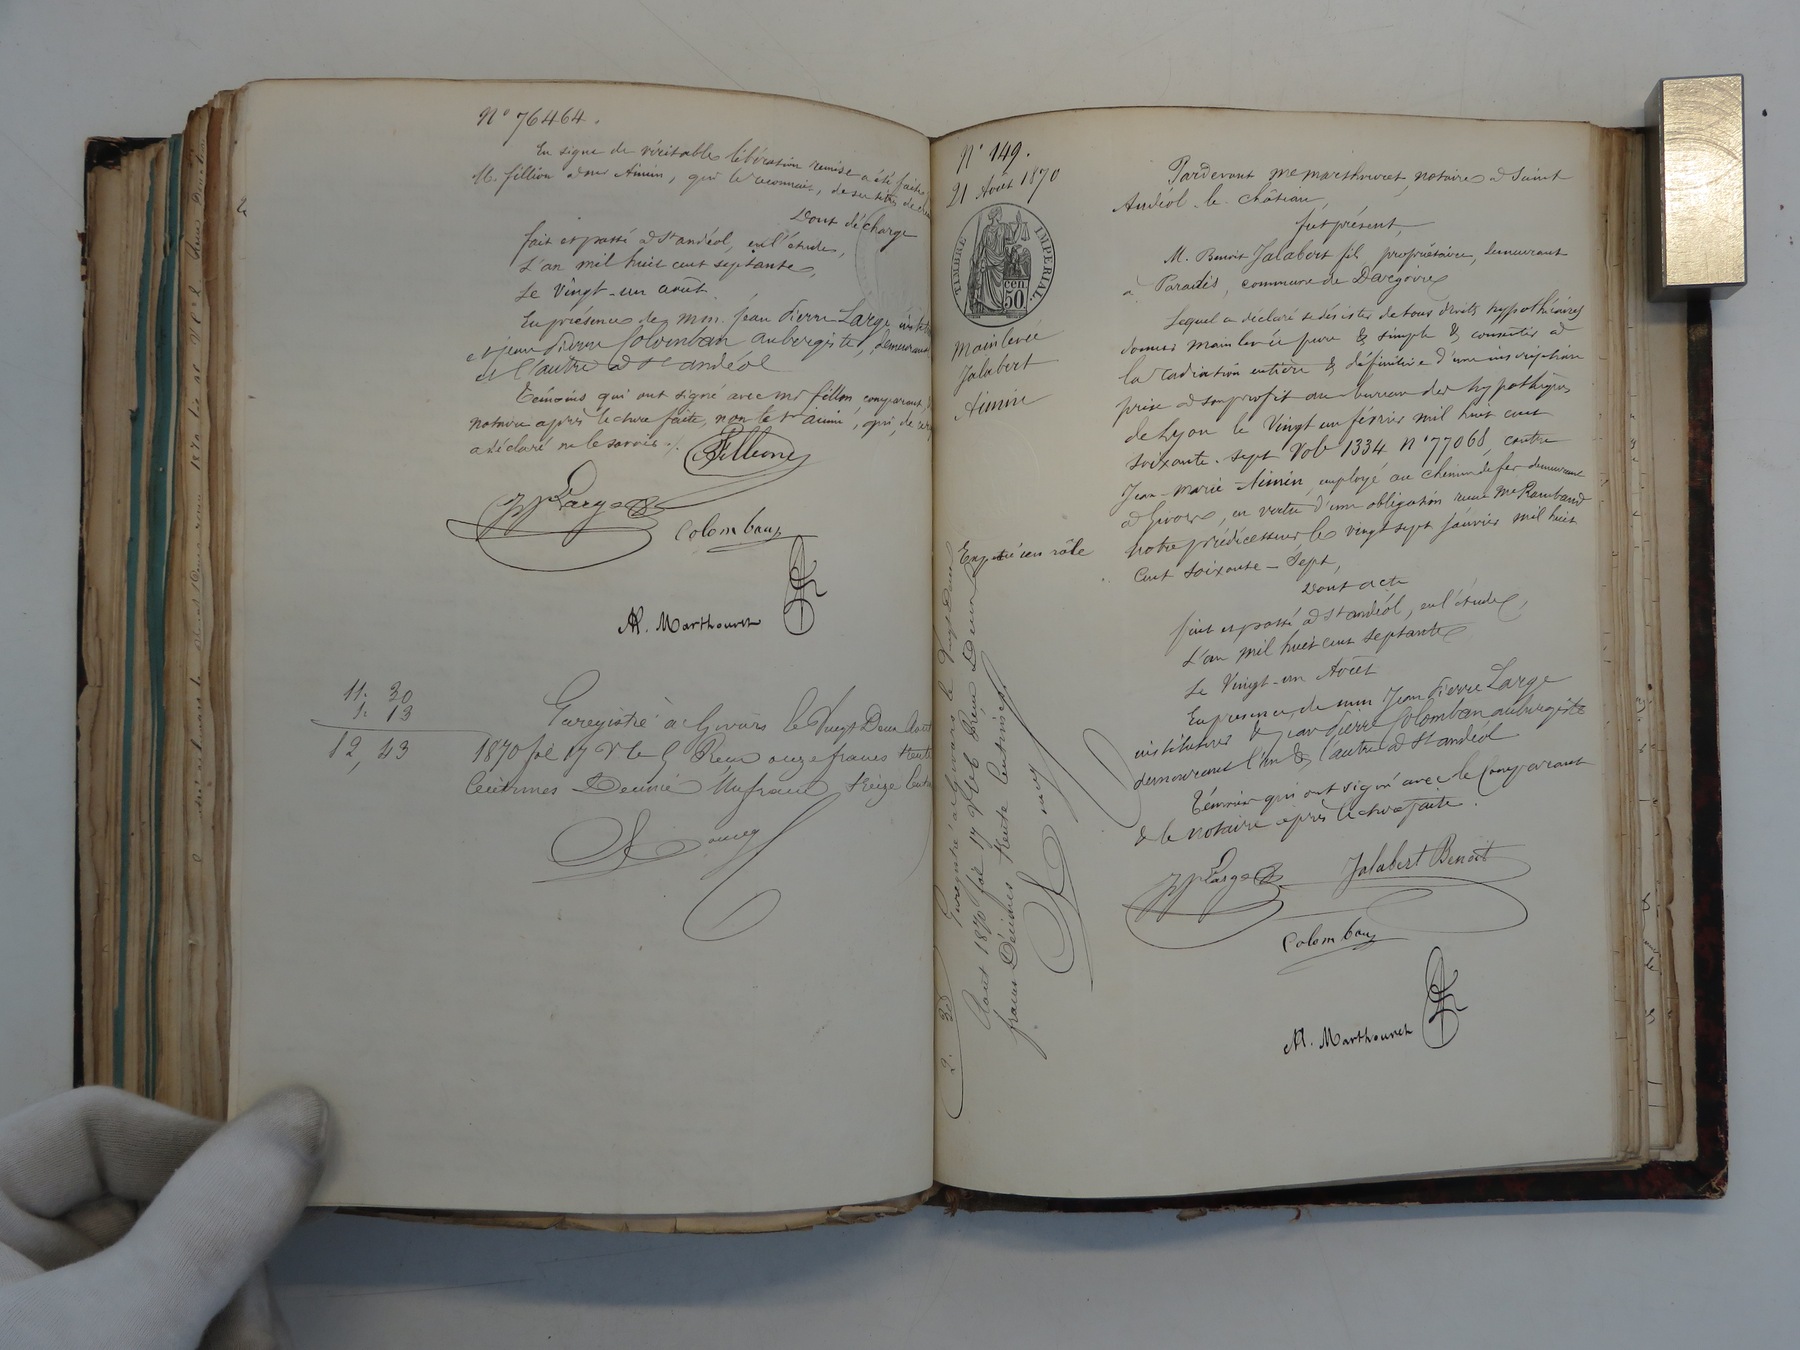 N° 76464.
En signe de véritable libération remise a été faite
M. fillion a mr Aimin, qui le reconnais, de ses titres de
Dont décharge
fait et passé a St andéol, en l'étude,
L'an mil huit cent septante,
Le Vingt-un aout.
En présence de mm. Jean Pierre Large
et jean Pierre Colomban aubergiste, demeurant
et l'autre a St andéol
Témoins qui ont signé avec mr fillon, comparant
notaire après lecture faite, non le sr aimin, qui, de
a déclaré ne le savoir ./.
Fillion
JP Large
Colomban
Al. Marthouret
11. 30
1. 13
12, 43
Enregistré à Givors le Vingt Deux Aout
1870 fol 17 Vo Ce 5 Reçu onze francs trente
Centimes Decime Un franc treize
N° 149.
21 Aout 1870
TIMBRE IMPERIAL.
50 cen
Mainlevée
Jalabert
Aimin
Expédié en rôle
Enregistré a Givors le Vingt Deux
Aout 1870 fol 17 Vo C6 Reçu Deux
francs Décimes trente Centimes
2. 30
Pardevant Me Marthouret, notaire a Saint
Andéol le Château,
fut présent,
M. Benoit Jalabert fils, propriétaire, demeurant
a Paradis, commune de Dargoire
Lequel a déclaré se désister de tous droits hypothécaires
donner main levée pure & simple & consentir a
la radiation entière & définitive d'une inscription
prise a son profit au bureau des hypothèques
de Lyon le Vingt un février mil huit cent
soixante-sept Vol 1334 N° 77068, contre
Jean-Marie Aimin, employé au chemin de fer demeurant
a Givors, en vertu d'une obligation reçue Me Rambaud
notre prédécesseur le vingt sept janvier mil huit
Cent soixante-Sept,
Dont acte
fait et passé a St andéol, en l'étude,
L'an mil huit cent septante
Le Vingt-un Aout
En présence de mm Jean Pierre Large
instituteur & jean Pierre Colomban aubergiste
demeurant l'un & l'autre a St andéol
Témoins qui ont signé avec le comparant
& le notaire après lecture faite.
JP Large
Jalabert Benoit
Colomban
Al. Marthouret